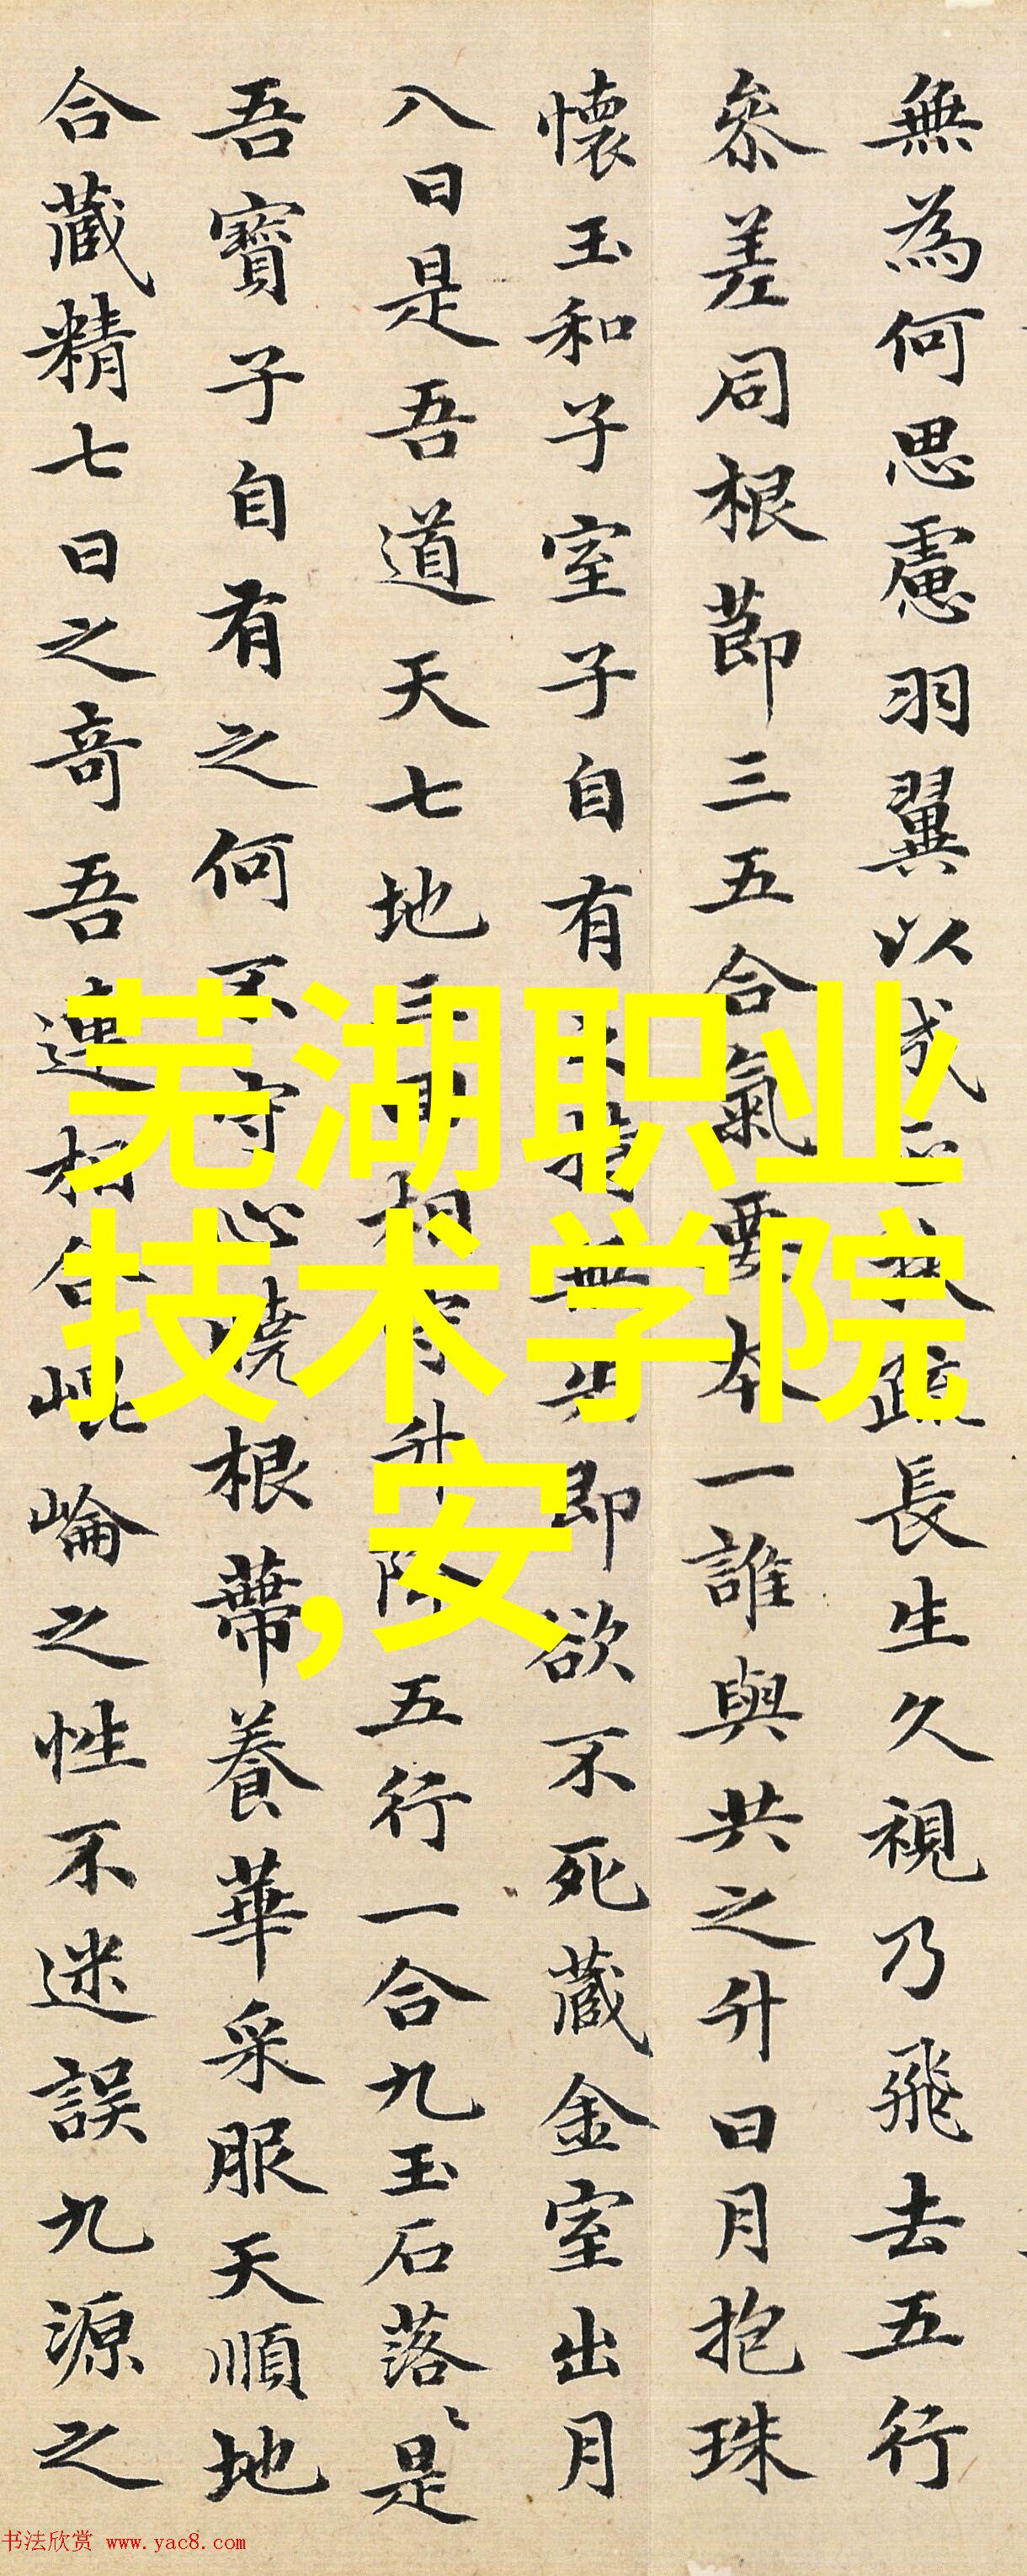 無為何思慮羽翼以成正扶疏長生久視乃飛去五行
叅差同根莭三五合氣要本一誰與共之升日月抱珠
懷玉和子室子自有之持無失即欲不死藏金室出月
八日是吾道天七地三回相守升降五行一合九玉石落〻是
吾寶子自有之何不守心曉根蔕養華采服天順地
合藏精七日之奇吾連相合崐崘之性不迷誤九源之
芜湖职业
技术学院
,安
书法欣赏 www.yac8.com